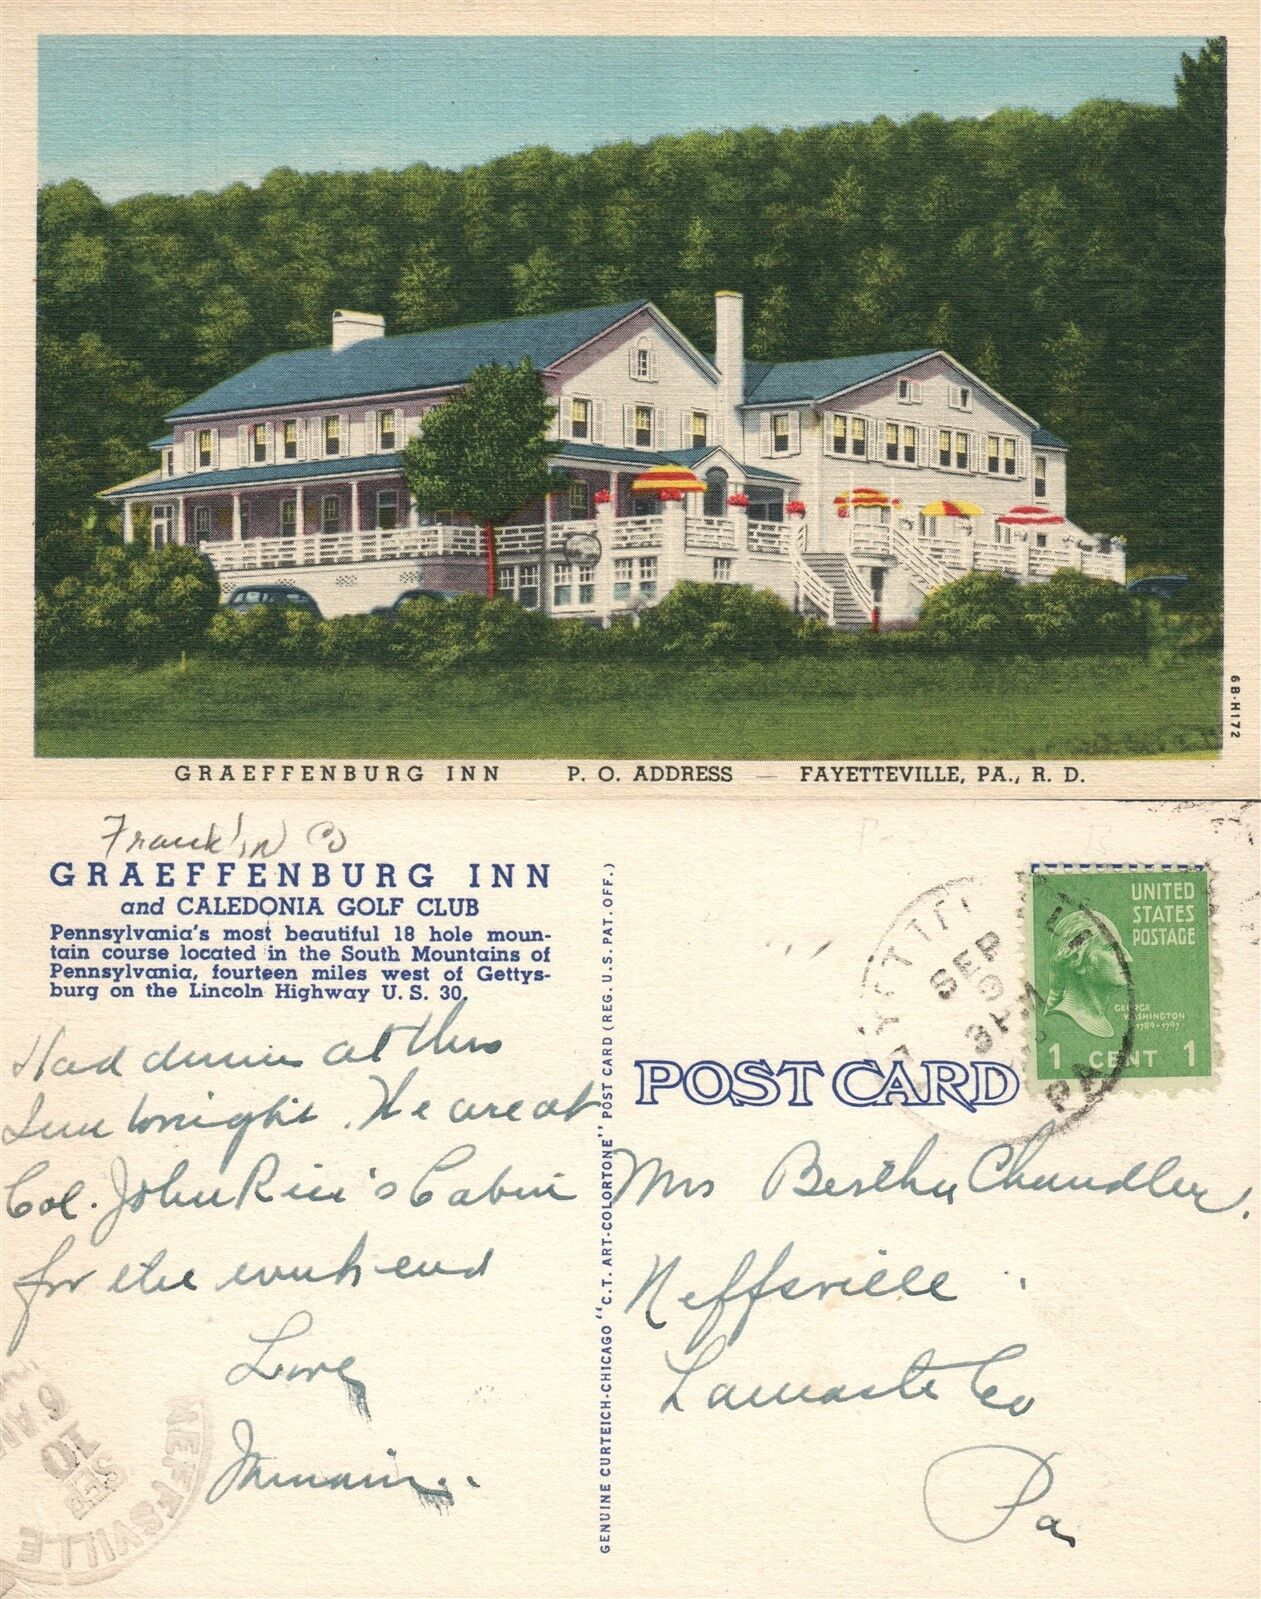 6B-H172
GRAEFFENBURG INN P. O. ADDRESS — FAYETTEVILLE, PA., R. D.
Franklin Co
GRAEFFENBURG INN
and CALEDONIA GOLF CLUB
Pennsylvania's most beautiful 18 hole moun-
tain course located in the South Mountains of
Pennsylvania, fourteen miles west of Gettys-
burg on the Lincoln Highway U. S. 30.
Had dinner at this
Inn tonight. We are at
Col. John Rice's Cabin
for the week end
Love
GENUINE CURTEICH-CHICAGO "C.T. ART-COLORTONE" POST CARD (REG. U. S. PAT. OFF.)
POST CARD
UNITED
STATES
POSTAGE
GEORGE
WASHINGTON
1789-1797
1 CENT 1
SEP
9
3 PM
PA
Mrs Bertha Chandler.
Neffsville
Lancaster Co
Pa.
NEFFSVILLE
SEP
10
6 AM